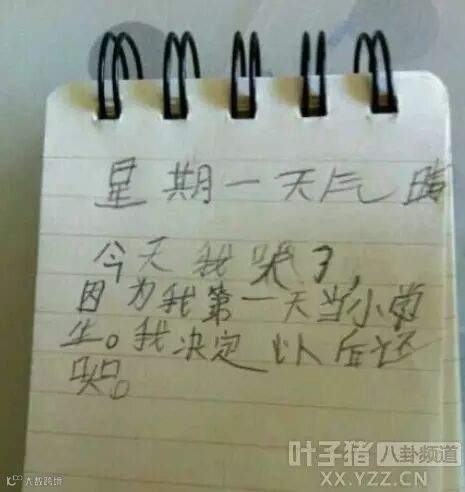 星期一天气晴
今天我哭了,
因为我第一天当小学
生。我决定以后还
哭。
叶子猪 八卦频道
XX.YZZ.CN
大数跨境